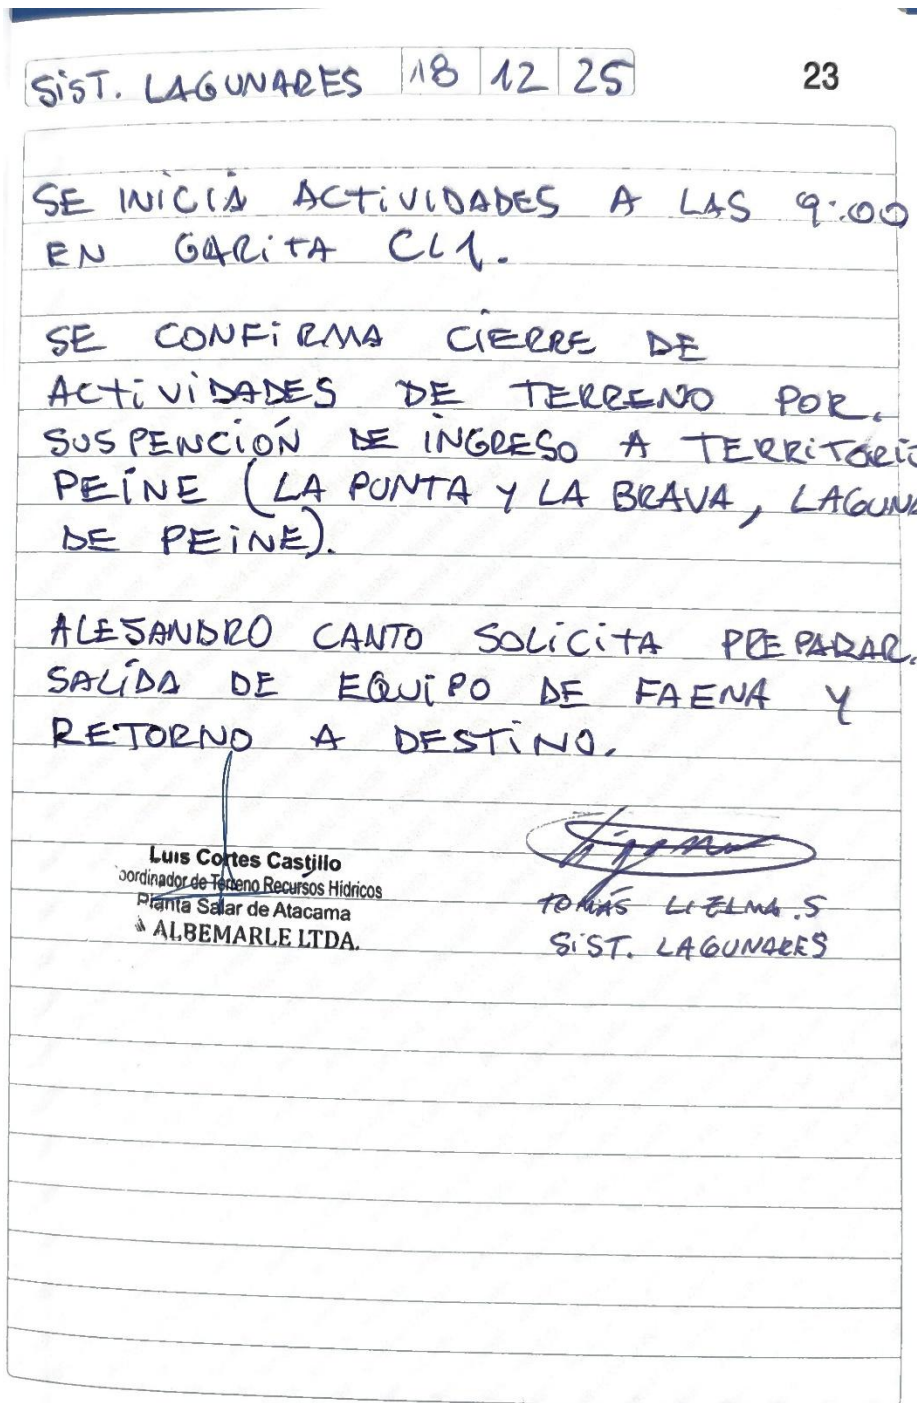 SiST. LAGUNARES 18 12 25 23
SE INICIA ACTIVIDADES A LAS 9:00
EN GARITA CL1.
SE CONFIRMA CIERRE DE
ACTIVIDADES DE TERRENO POR.
SUSPENCIÓN DE INGRESO A TERRITORIO
PEINE (LA PUNTA Y LA BRAVA, LAGUNA
DE PEINE).
ALESANDRO CANTO SOLICITA PREPARAR.
SALIDA DE EQUIPO DE FAENA Y
RETORNO A DESTINO.
Luis Cortes Castillo
oordinador de Terreno Recursos Hidricos
Planta Salar de Atacama
ALBEMARLE LTDA.
TOMÁS S
SiST. LAGUNARES